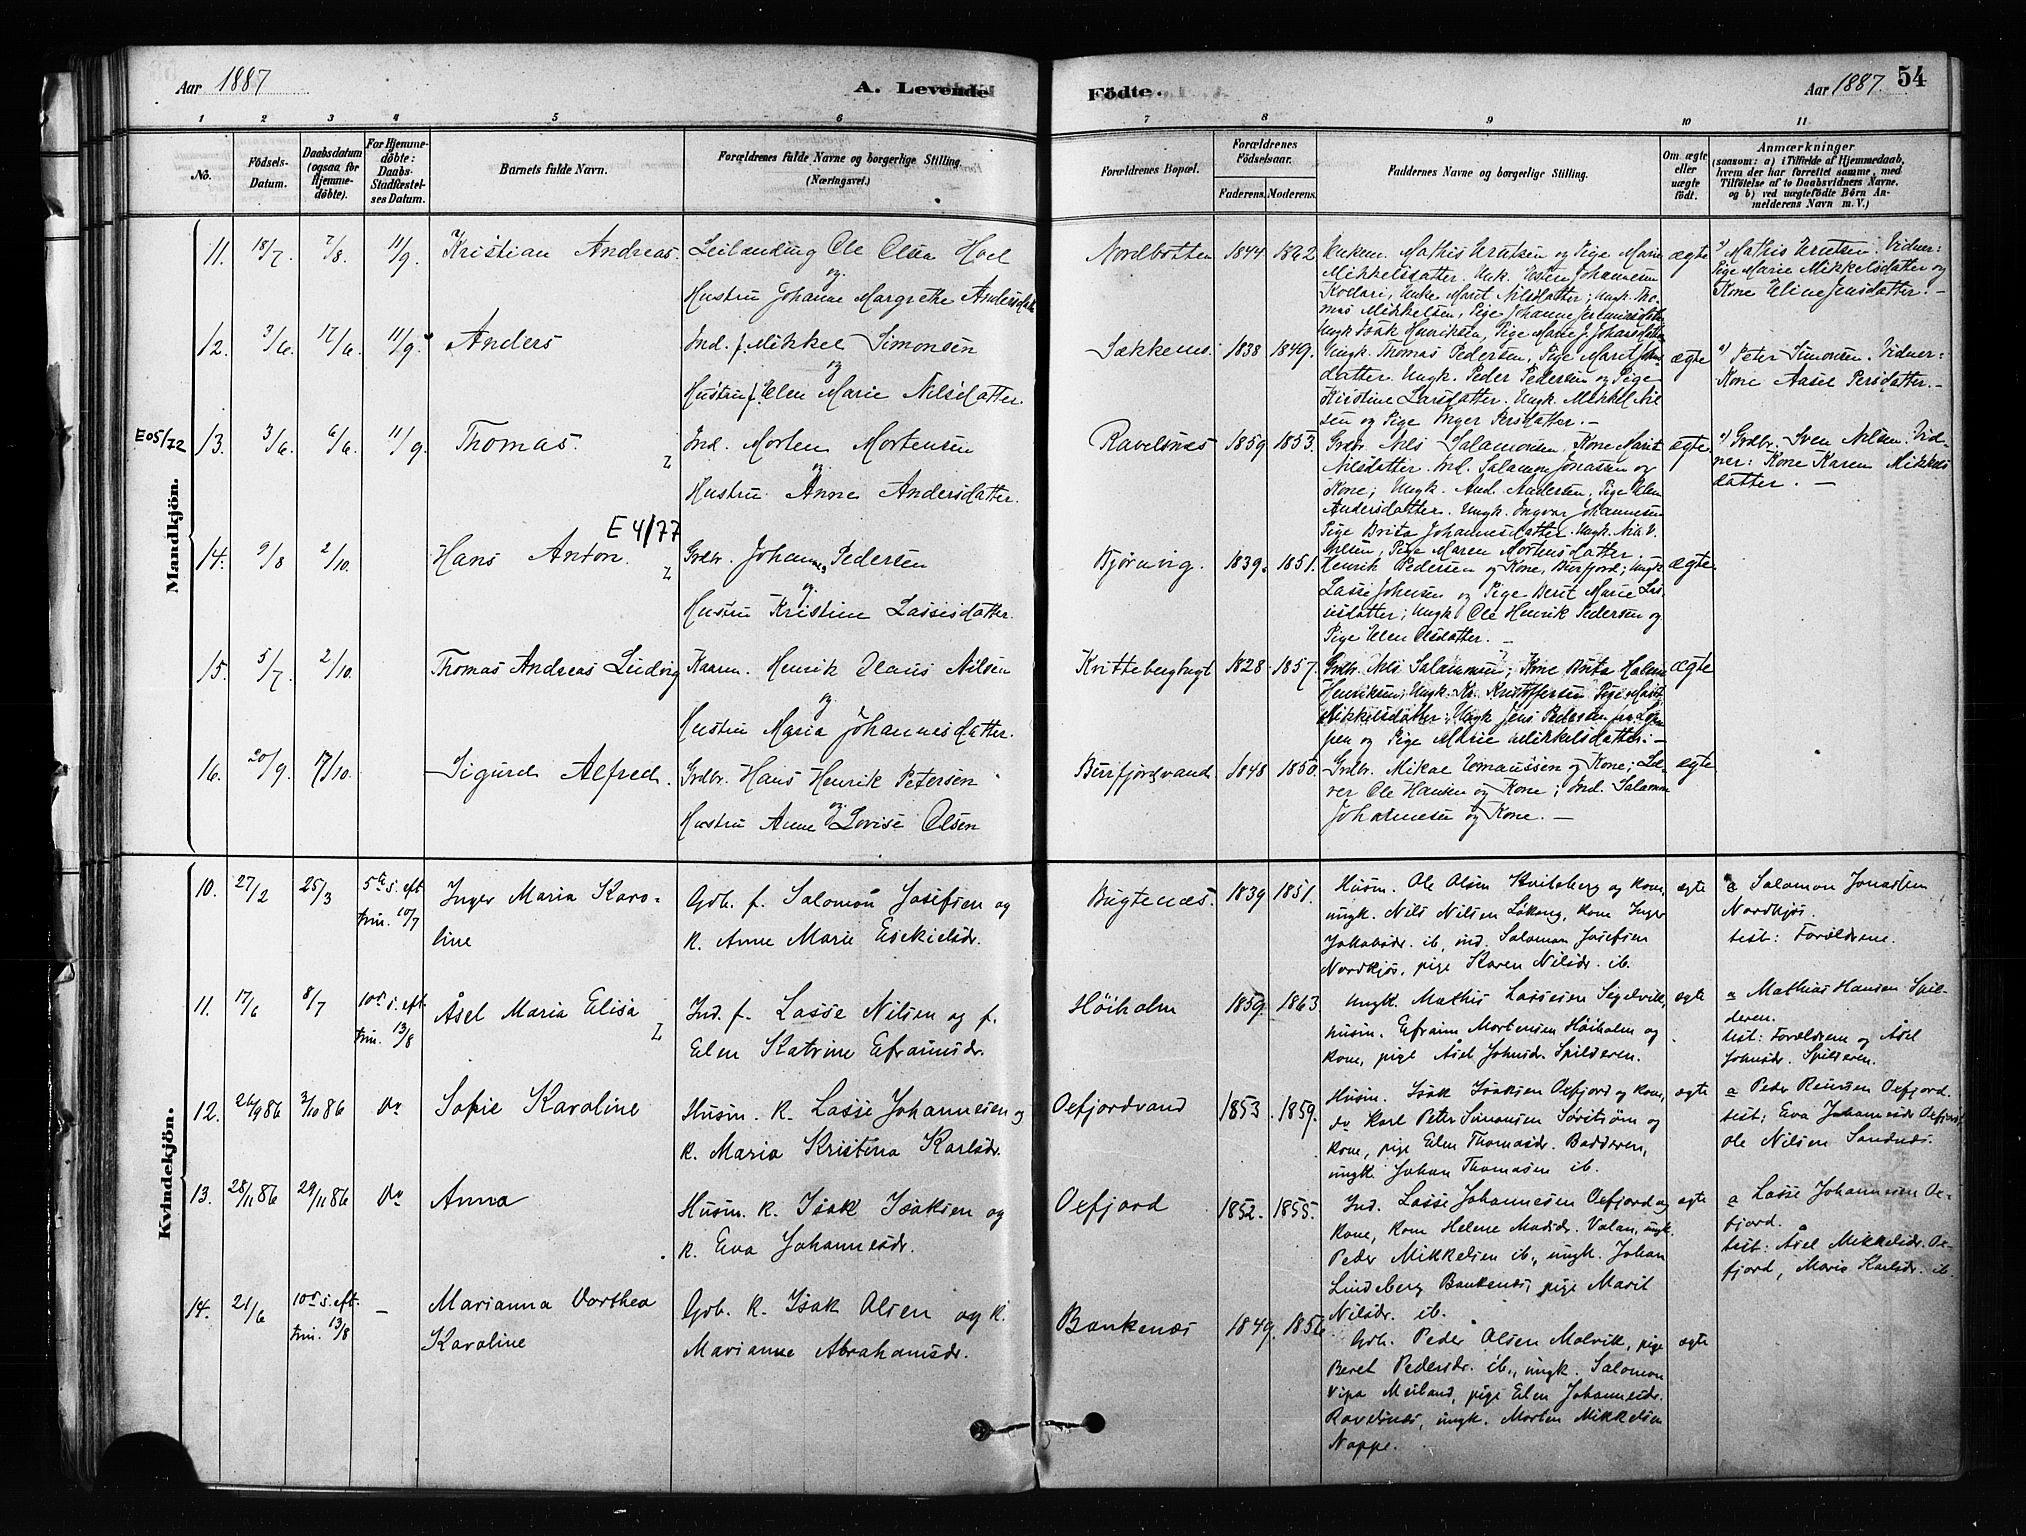 Aar 1887
A. Levende
Födte.
Aar 1887.
54
1 2 3 4 5 6 7 8 9 10 11
No.
Födsels-
Datum.
Daabsdatum
(ogsaa for
Hjemme-
döbte).
For Hjemme-
döbte:
Daabs-
Stadfæstel-
ses Datum.
Barnets fulde Navn.
Forældrenes fulde Navne og borgerlige Stilling.
(Næringsvei.)
Forældrenes Bopæl.
Forældrenes
Födselsaar.
Faderens. Moderens.
Faddernes Navne og borgerlige Stilling.
Om ægte
eller
uægte
født.
Anmærkninger
(saasom: a) i Tilfælde af Hjemmedaab,
hvem der har forrettet samme, med
Tilföielse af to Daabsvidners Navne.
og b) ved uægtefödte Börn An-
melderens Navn m. V.)
Mandkjön.
11. 18/7. 7/8. 11/9. Kristian Andreas.
Leilænding Ole Olsen Hoel
og
Hustru Johanne Margrethe Andersdatter
Nordbotten 1844 1862
Mathis Knutsen og Pige Marie
Mikkelsdatter. Johannesen
Ungk. Maret Nilsdatter; Ungk. Tho-
mas Mikkelsen, Pige Johanne
Ungk. Isak Henriksen, Pige Marie J. Johansdatter
ægte
Mathis Knutsen. Vidner:
Pige Marie Mikkelsdatter og
Kone Eline Jensdatter. —
12. 3/6. 12/6. 11/9. Anders
Ind. f. Mikkel Simonsen
og
Hustru f. Elen Marie Nilsdatter.
Sækkenes. 1838 1849.
Ungk. Thomas Pedersen, Pige Marit
datter. Ungk. Peder Pedersen og Pige
Kirstine Larsdatter. Ungk. Mikkel Nil-
sen og Pige Inger Persdatter. —
ægte
Peter Simonsen. Vidner:
Kone Aasel Persdatter. —
E05/72 13. 3/6. 6/6. 11/9. Thomas.
Ind. Morten Mortensen
og
Hustru Anne Andersdatter.
Ravelsnæs 1859 1853.
Grdbr. Nils Salamonsen, Kone Marit
Nilsdatter. Ind. Salamon Jonassen og
Kone; Ungk. And. Andersen, Pige Elen
Andersdatter. Ungk. Ingvar Johannesen
Pige Brita Johannesdatter. Ungk. Nils N.
Nilsen, Pige Maren Mortensdatter. —
ægte
Grdbr. Sven Nilsen. Vid-
ner: Kone Karen Mikkels
datter. —
E 4/77
14. 9/8 2/10. Hans Anton.
Grdbr. Johannes Pedersen
og
Hustru Kristine Lassesdatter.
Bjørnvig. 1839. 1851.
Henrik Pedersen og Kone, Burfjord; Ungk.
Lasse Johnsen og Pige Berit Marie Las-
sesdatter; Ungk. Ole Henrik Pedersen og
Pige Elen Olsdatter. —
ægte.
15. 5/7. 2/10. Thomas Andreas Ludvig
Kaarm. Henrik Olaus Nilsen
og
Hustru Maria Johannesdatter.
Kvittebergbugt 1828 1857.
Grdbr. Nils Salamonsen; Kone Brita Helene
Henriksen; Ungk. Kr. Kristoffersen Pige Marit
Mikkelsdatter; Ungk. Jens Pedersen fra Lop-
pen og Pige Marie Mikkelsdatter: —
ægte
16. 20/9. 17/10. Sigurd Alfred.
Grdbr. Hans Henrik Petersen
og
Hustru Anne Lovise Olsen
Burfjordvand 1848 1850.
Grdbr. Mikal Emaussen og Kone; Læ-
rer Ole Hansen og Kone; Ind. Salamon
Johannesen og Kone. —
ægte
Kvindekjön.
10. 27/2 25/3 5te s. eft.
trin. 10/7
Inger Maria Karo-
line
Gdb. f. Salomon Josefsen og
k. Anne Marie Esekielsdr.
Bugtenæs. 1839 1851.
Husm. Ole Olsen Kviteberg og kone,
ungk. Nils Nilsen Løkeng, kone Inger
Jakobsdr. ib, ind. Salomon Josefsen
Nordkjos, pige Karen Nilsdr. ib.
ægte
a Salomon Jonassen
Nordkjos.
test: Forældrene.
11. 17/6 8/7 10de s. eft.
trin. 13/8
Åsel Maria Elisa
Ind. f. Lasse Nilsen og f.
Elen Katrine Efraimsdr.
Høiholm 1859. 1863.
Ungk. Mathis Lassesen Segelvik,
husm. Efraim Mortensen Høiholm og
kone, pige Åsel Johnsdr. Spilderen.
ægte
a Mathias Hansen Spil-
deren.
test: Forældrene og Åsel
Johnsdr. Spilderen.
12. 26/9 86 3/10 86 do Sofie Karoline
Husm. k. Lasse Johannesen og
k. Maria Kristina Karlsdr.
Oxfjordvand 1853. 1859.
Husm. Isak Isaksen Oxfjord og kone,
do Karl Peter Simonsen Sørstrøm og
kone, pige Elen Thomasdr. Badderen,
ungk. Johan Thomasen ib.
ægte
a Peder Oxfjord.
test: Eva Johannesdr. Oxfjord,
Ole Nilsen Sandnæs.
13. 28/11 86 29/11 86 do Anna
Husm. k. Isak Isaksen og
k. Eva Johannesdr.
Oxfjord 1852. 1855.
Ind. Lasse Johannesen Oxfjord og
kone, kone Helene Madsdr. Valan, ungk.
Peder Mikkelsen ib., ungk. Johan
Lindeberg Bankenæs, pige Marit
Nilsdr. ib.
ægte
a Lasse Johannesen Ox-
fjord.
test: Åsel Mikkelsdr. Ox-
fjord, Maria Karlsdr. ib.
14. 21/6 10de s. eft.
trin. 13/8 —
Marianna Dorthea
Karoline
Gdb. k. Isak Olsen og k.
Marianne Abrahamsdr.
Bankenæs 1849. 1856
Gdb. Peder Olsen Malvik, pige
Beret Pedersdr. ib., ungk. Salomon
Vipa Meiland, pige Elen Johannesdr.
Ravelsnæs, ungk. Morten Mikkelsen
Noppe.
ægte